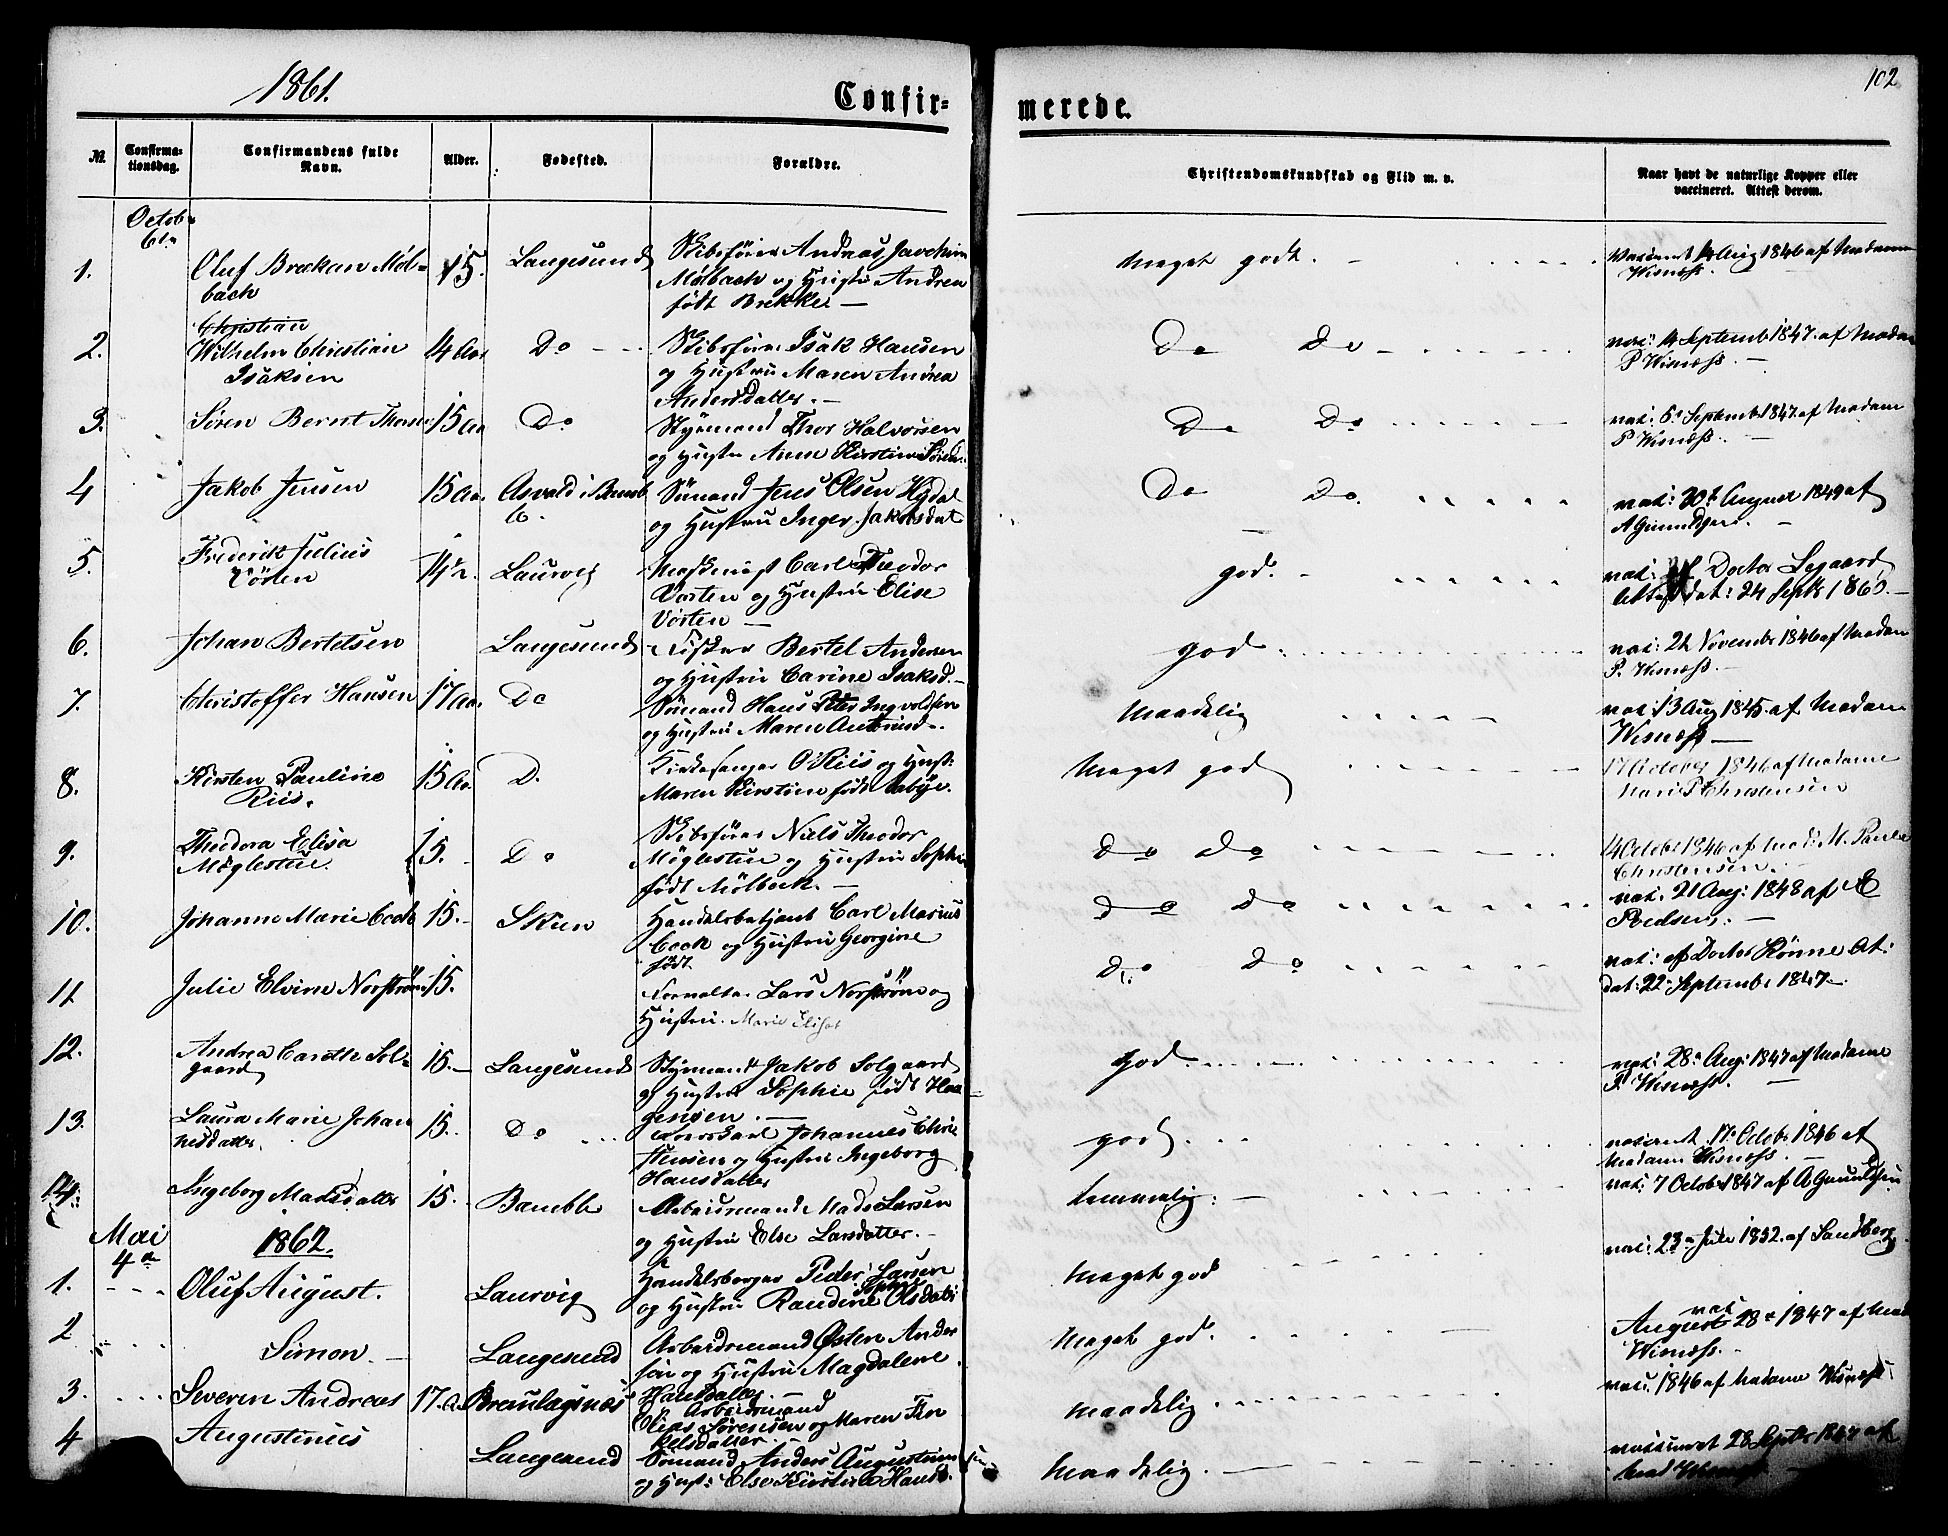 1861.
102
Confir=
merede.
№.
Confirma-
tionsdag.
Confirmandens fulde
Navn.
Alder.
Fødested.
Forældre.
Christendomskundskab og Flid m. v.
Naar havt de naturlige Kopper eller
vaccineret. Attest derom.
Octob
6te
1.
Oluf Brekan Möl-
bach
15.
Langesund
Skibsfører Andreas Joachim
Mølbach og Hustru Andrea
født Brekke. —
Meget godt.
Vaccineret 14 Aug 1846 af Madam
Wisnæss.
2.
Christian
Wilhelm Christian
Isaksen
14 Aar
Do
Skibsfører Isak Hansen
og Hustru Maren Andrea
Andersdatter. —
Do Do
vac: 14 Septemb 1847 af Madam
P Wisnæss. —
3.
Sören Bernt Thorsen
15 Aar
Do
Styrmand Thor Halvorsen
og Hustru Anne Kirstine Sörens.
Do Do
vac: 6 Septemb 1847 af Madam
P Wisnæss.
4
Jakob Jensen
15 Aar.
Asvald i Bamb
Sömand Jens Olsen
og Hustru Inger Jakobsdat
Do Do
vac: 20 August 1849 af
A Gunuldsen. —
5.
Frederik Julius
Vörten
14½.
Laurvig
Carl Theodor
Vorten og Hustru Elise
Vörten —
god.
vac: af Doctor Legaard
Attest dat: 24 Septb 1860. —
6.
Johan Bertelsen
Langesund
Fisker Bertel Andersen
og Hustru Carine Isaksd. —
god.
vac: 21 November 1846 af Madam
P. Wisnæss —
7.
Christoffer Hansen
17 Aar.
Do
Sömand Hans Peter Ingvoldsen
og Hustru Maren
Maadelig
vac: 13 Aug 1845 af Madam
Wisnæss —
8.
Kirsten Pauline
Riis.
15 Aar.
Do
Kirkesanger O Riis og Hust.
Maren Kirstine født Aabye.
Meget god
17 October 1846 af Madame
Mari P Christensen
9.
Theodora Elisa
Möglestue.
15.
Do
Skibsfører Niels Theodor
Möglestue og Hustru Sophie
født Mölbach. —
Do Do
14 Octobr 1846 af Mad: M. Paulie
Christensen.
10.
Johanne Marie Cook
15.
Skien
Handelsbetjent Carl Marius
Cook og Hustru Georgine
født
Do Do
vac: 21 Aug: 1848 af E
Pedersen. —
11
Julie Elvine Norström
15.
Forvalter Lars Norström og
Hustru Marie Elisa
Do Do
vac: af Doctor Rönne At:
dat: 22 September 1847.
12.
Andrea Carethe Sol-
gaard
15. —
Langesund
Styrmand Jakob Solgaard
og Hustru Sophie født Haa-
gensen. —
God.
vac: 28 Aug: 1847 af Madame
P Wisnæss. —
13.
Laura Marie Johan
nesdatter.
15.
Do
Johannes Chris
tensen og Hustru Ingeborg
Hansdatter
god.
vaccineret 17 Octob 1846 af
Madam Wisnæss. —
14.
Ingeborg Madsdatter
15.
Bamble
Arbeidsmand Mads Larsen
og Hustru Else Larsdatter. —
temmelig. —
vac: 7 Octob 1847 af A Gunuldsen
Mai
4de
1862.
1.
Oluf August.
Laurvig
Handelsborger Peder Larsen
og Hustru Randine Sophie Olsdatt
Meget god
vac: 23 Juli 1852 af Sandberg
2
Simon. —
Langesund
Arbeidsmand Østen Ander
sen og Hustru Magdalene
Hansdatter. —
Meget god.
vac
August 28 1847 af Mad
Wisnæss.
3.
Severin Andreas
17. A.
Arbeidsmand
Elias Sørensen og Maren
kelsdatter.
maadelig.
vac: 1846 af Madame Wisnæss
4
Augustinus
Langesund
Sömand Anders Augustinus
sen
og Hust: Else Kirstine Hansd.
Maadelig.
vaccineret 28 Septbr 1847 af
Mad Wisnæss —